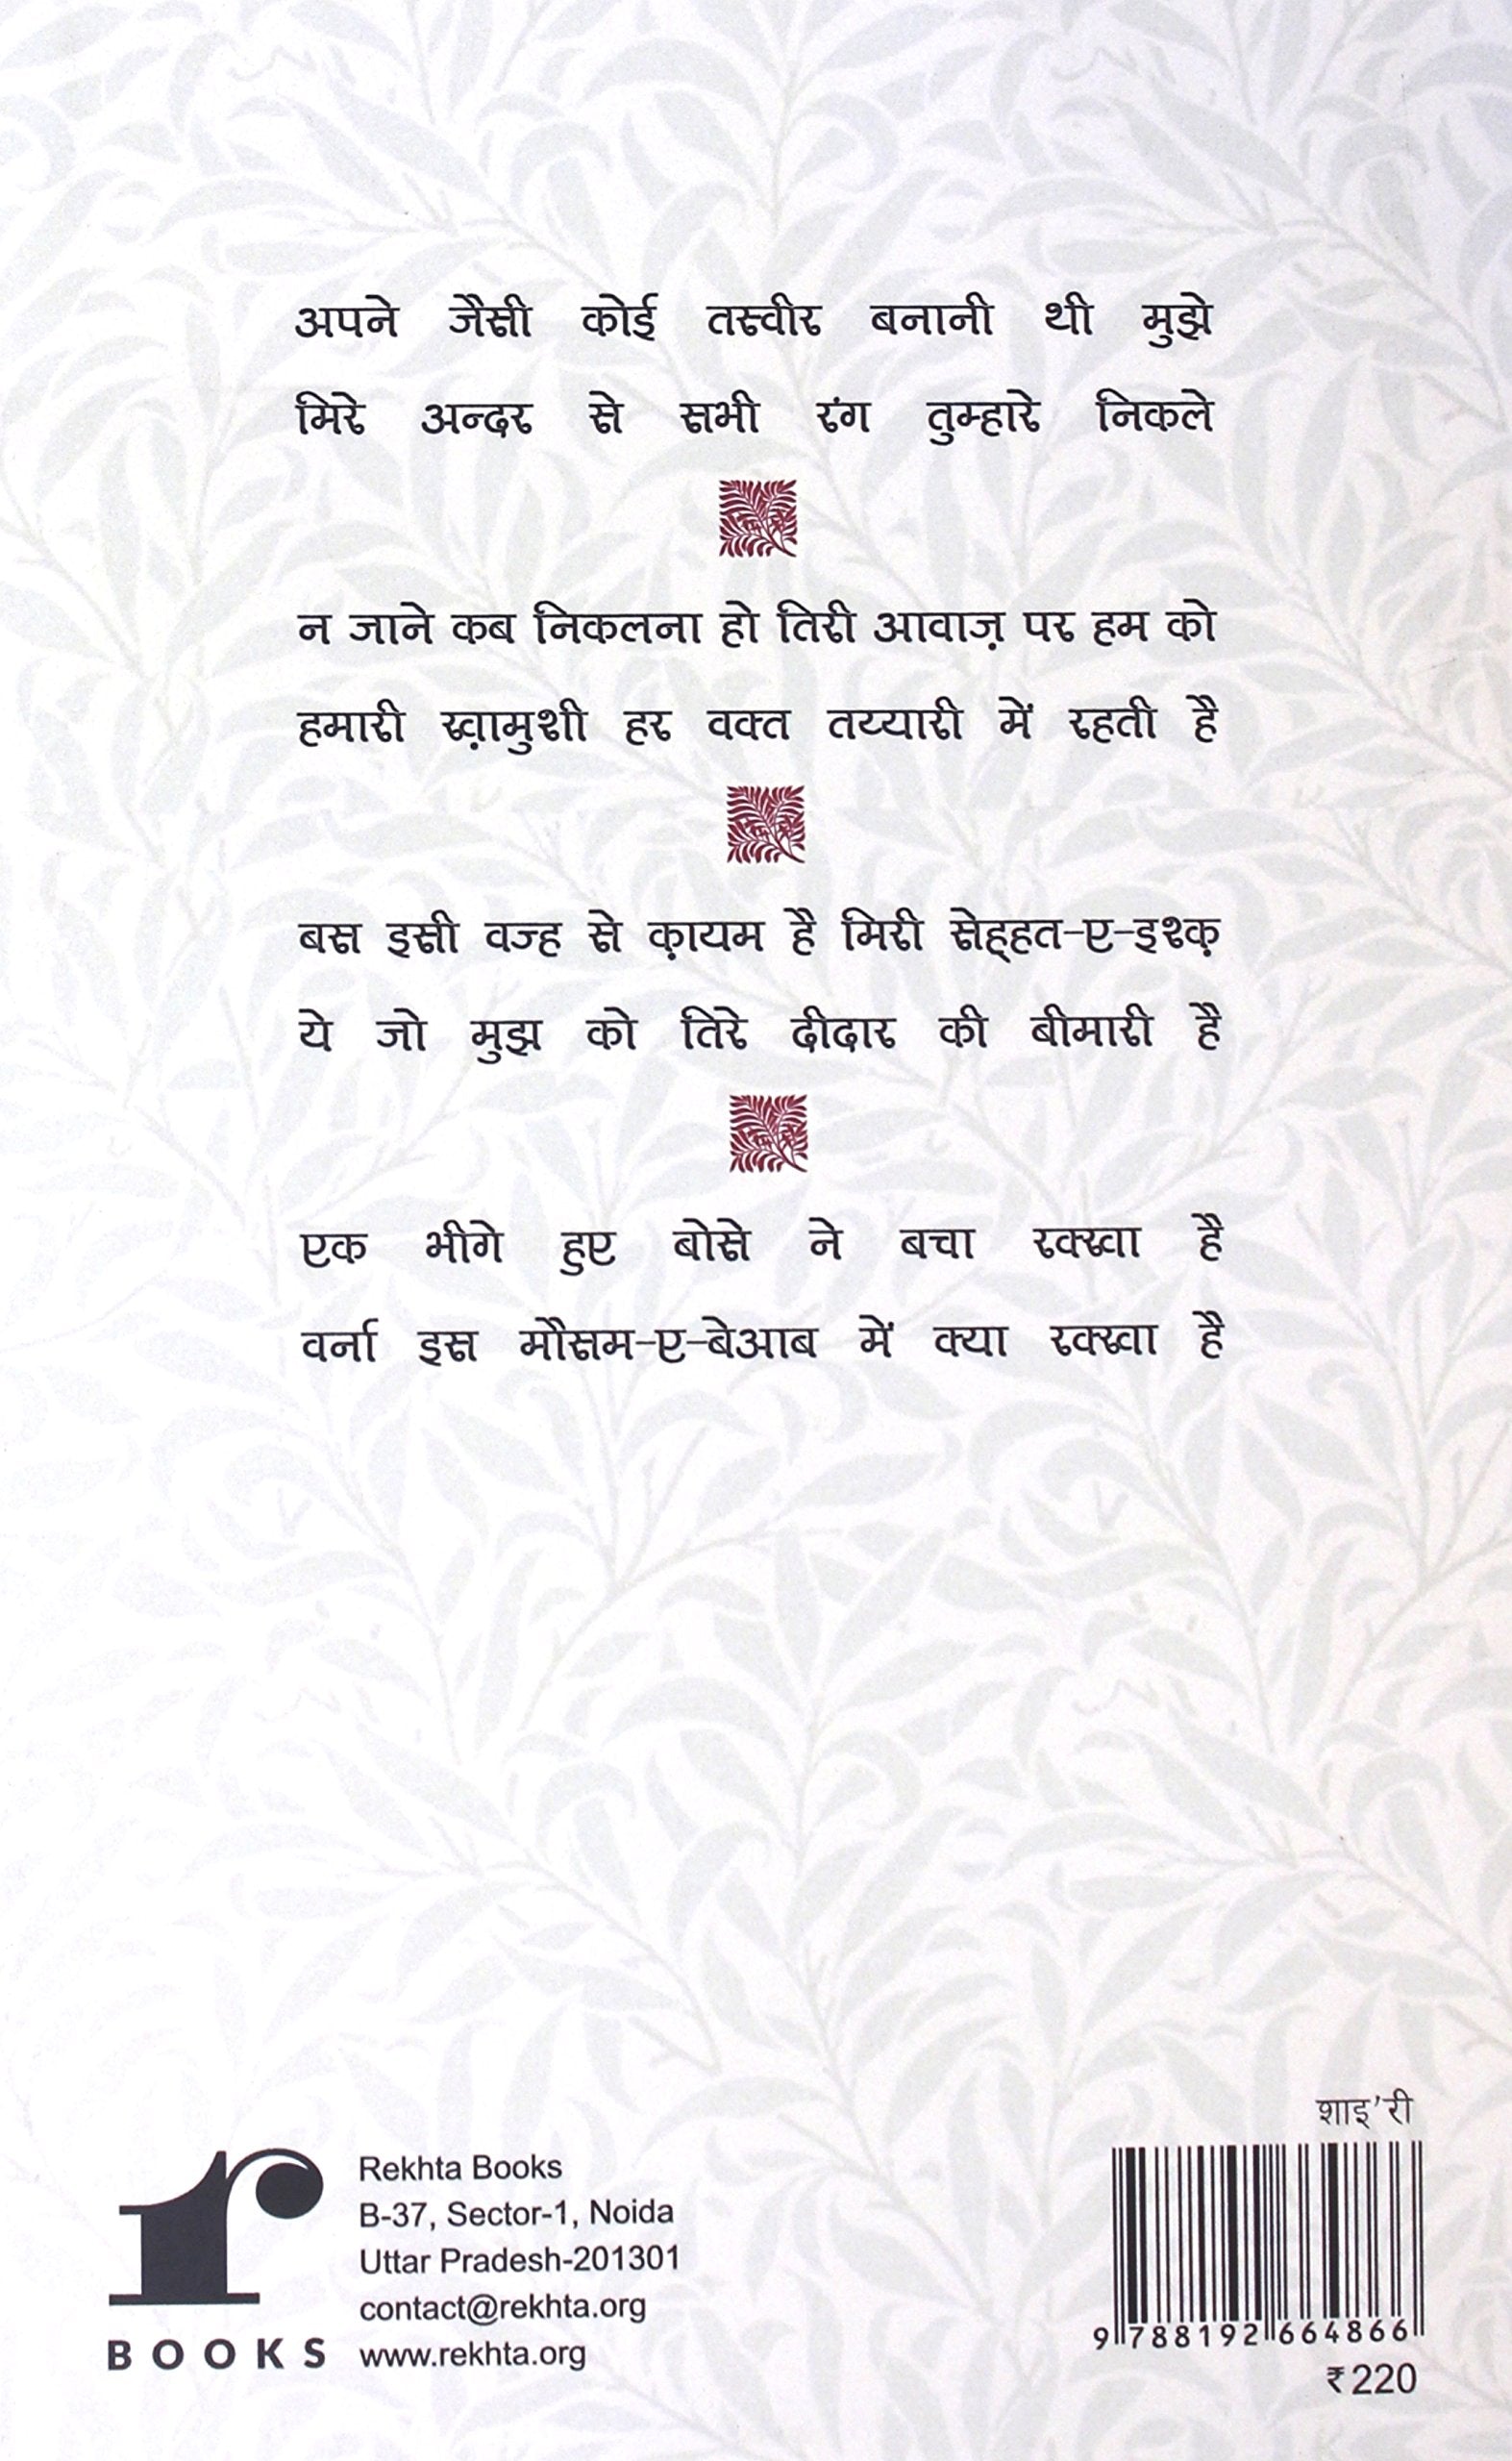 अपने जैसी कोई तस्वीर बनानी थी मुझे
मिरे अन्दर से सभी रंग तुम्हारे निकले
न जाने कब निकलना हो तिरी आवाज़ पर हम को
हमारी ख़ामुशी हर वक्त तय्यारी में रहती है
बस इसी वज्ह से क़ायम है मिरी सेह्हत-ए-इश्क़
ये जो मुझ को तिरे दीदार की बीमारी है
एक भीगे हुए बोसे ने बचा रक्खा है
वर्ना इस मौसम-ए-बेआब में क्या रक्खा है
शाइ'री
r
BOOKS
Rekhta Books
B-37, Sector-1, Noida
Uttar Pradesh-201301
contact@rekhta.org
www.rekhta.org
9 788192 664866
₹220